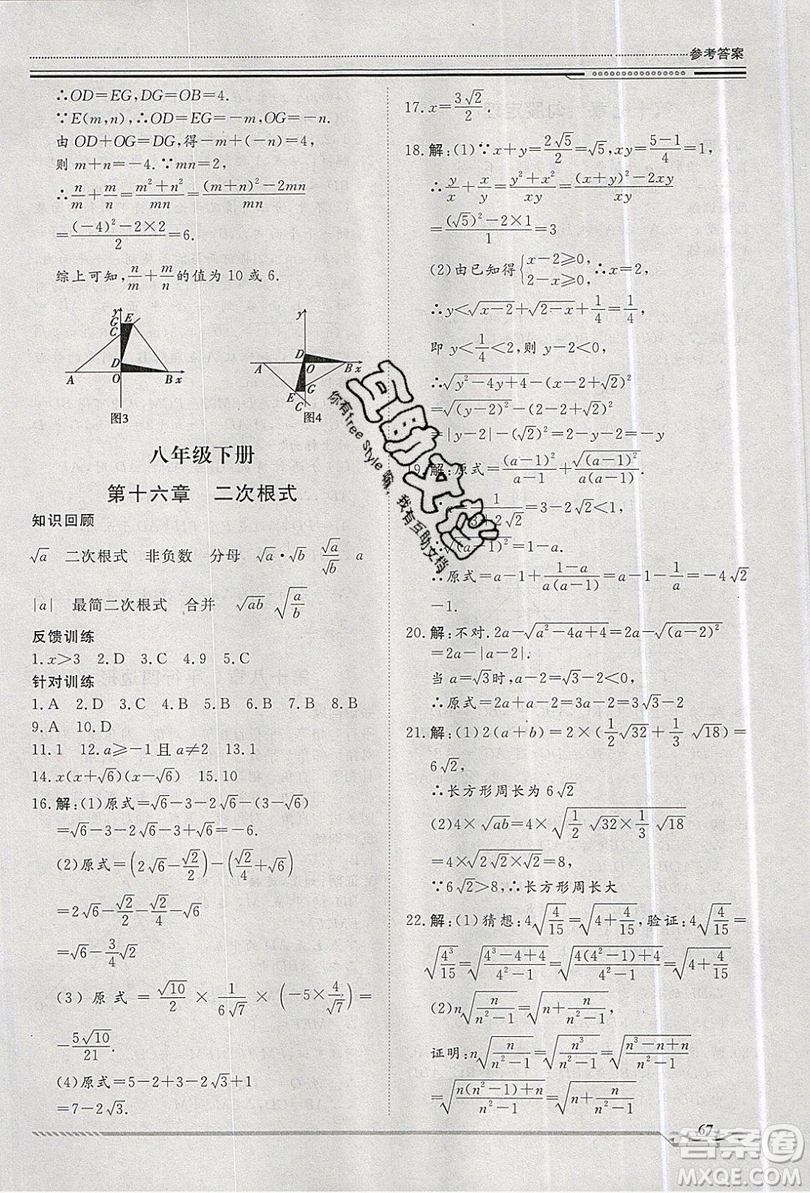 参考答案
∴OD=EG,DG=OB=4.
∵E(m,n),∴OD=EG=m,OG=-n.
由 OD+OG=DG=4,得 m+(-n)=4,
则 m+n=-4.∵mn=2,
∴n/m+m/n=(m²+n²)/mn=((m+n)²-2mn)/mn
=((-4)²-2×2)/2=6.
综上可知,n/m+m/n的值为 10 或 6.
y G E C D A O B x
图3
y D A O B x G E C
图4
八年级下册
第十六章 二次根式
知识回顾
√a 二次根式 非负数 分母 √a·√b √a/√b a
|a| 最简二次根式 合并 √(ab) √(a/b)
反馈训练
1.x>3 2.D 3.C 4.9 5.D
针对训练
1.A 2.D 3.C 4.A 5.D 6.B 7.B 8.B
9.A 10.D
11.1 12.a≥-1且a≠2 13.1
14.x(x+√6)(x-√6) 15.10
16.解:(1)原式=√6-3-2√6-(3-√6)
=√6-3-2√6-3+√6=-6.
(2)原式=(2√6-√2/2)-(√2/4+√6)
=2√6-√2/2-√2/4-√6
=√6-3/4√2
(3)原式=√10/2×1/(6√7)×(-5×4/√7)=
-5√10/21.
(4)原式=5-2+3-2√3+1
=7-2√3.
17.x=3√2/2.
18.解:(1)∵x+y=2√5/2=√5,xy=(5-1)/4=1,
∴y/x+x/y=(y²+x²)/xy=((x+y)²-2xy)/xy
=((√5)²-2×1)/1=3
(2)由已知得{x-2≥0, 2-x≥0,∴x=2,
∴y<√(x-2)+√(2-x)+1/4=1/4,
即 y<1/4<2 则 y-2<0,
∴√(y²-4y+4)-(2+√2y)
=√((y-2)²)-(2+√2)²)
=|y-2|-
19.解:原式=(a-1)²/(a-1)-√((a-1)²)/(a(a-1))
∴√((a-1)²)=1-a.
∴原式=a-1+(1-a)/(a(a-1))=a-1-1/a=4√2-
1.
20.解:不对.2a-√(a²-4a+4)=2a-√((a-2)²)
=2a-|a-2|.
当 a=√3时,a-2=√3-2<0,
∴原式=2a+a-2=3a-2=3√3-2
21.解:(1)2(a+b)=2×(1/2√32+1/3√18)=
6√2,
∴长方形周长为 6√2
(2)4×√(ab)=4×√(1/2√32×1/3√18)
=4×√(2√2×√2)=8,
∵6√2>8,∴长方形周长大
22.解:(1)猜想:4√(4/15)=√(4+4/15),验证:4√(4/15)=
√(4³/15)=√((4³-4+4)/(4²-1))=√((4(4²-1)+4)/(4²-1))=√(4+4/15)
(2)n√(n/(n²-1))=√(n+n/(n²-1)),
证明:n√(n/(n²-1))=√(n³/(n²-1))=√((n³-n+n)/(n²-1))
=√((n(n²-1)+n)/(n²-1))=√(n+n/(n²-1))
67
互助文档
你有free Style嘛,我有互助文档
答案圈
MXQE.COM